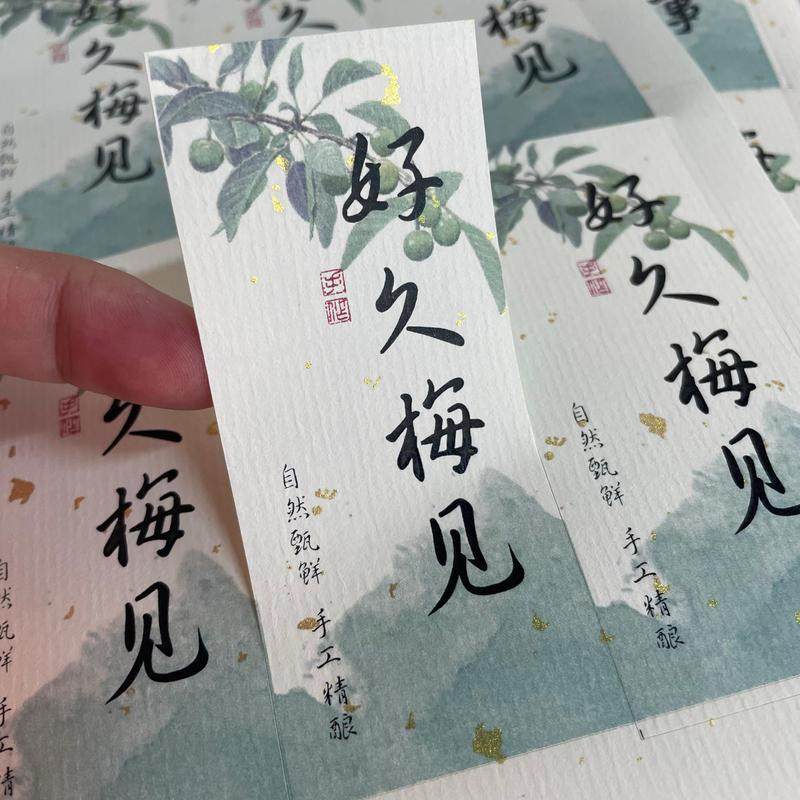 好久梅见
自然甄鲜 手工精酿
好久梅见
自然甄鲜 手工精酿
久梅见
自然甄鲜 手工精
久梅见
自然甄鲜 手工精
梅见
事
好